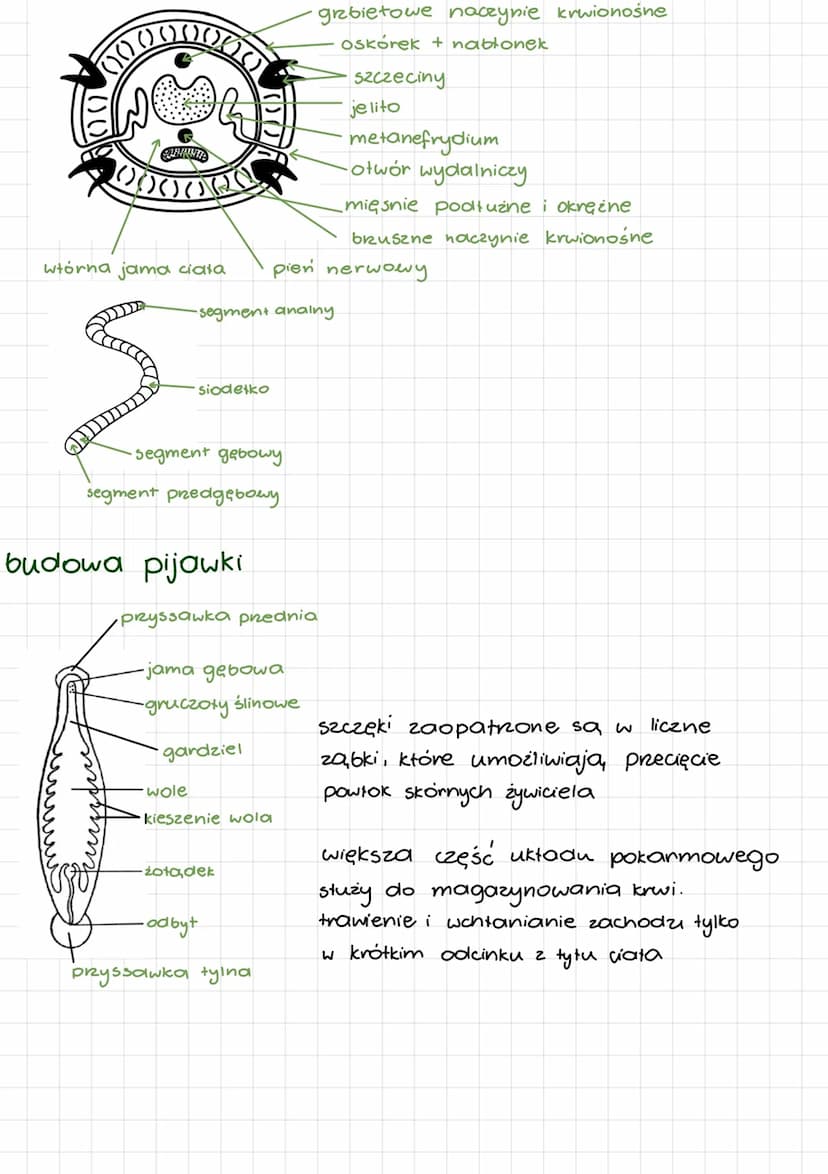 grzbietowe naczynie krwionośne
oskórek + nabłonek
szczeciny
jelito
metanefrydium
otwór wydalniczy
mięśnie podłużne i okrężne
brzuszne naczynie krwionośne
wtórna jama ciała
pień nerwowy
segment analny
siodełko
segment gębowy
segment przedgębowy
budowa pijawki
przyssawka przednia
jama gębowa
gruczoły ślinowe
gardziel
wole
kieszenie wola
żołądek
odbyt
przyssawka tylna
szczęki zaopatrzone są w liczne
ząbki, które umożliwiają przecięcie
powłok skórnych żywiciela
większa część układu pokarmowego
służy do magazynowania krwi.
trawienie i wchłanianie zachodzi tylko
w krótkim odcinku z tyłu ciała